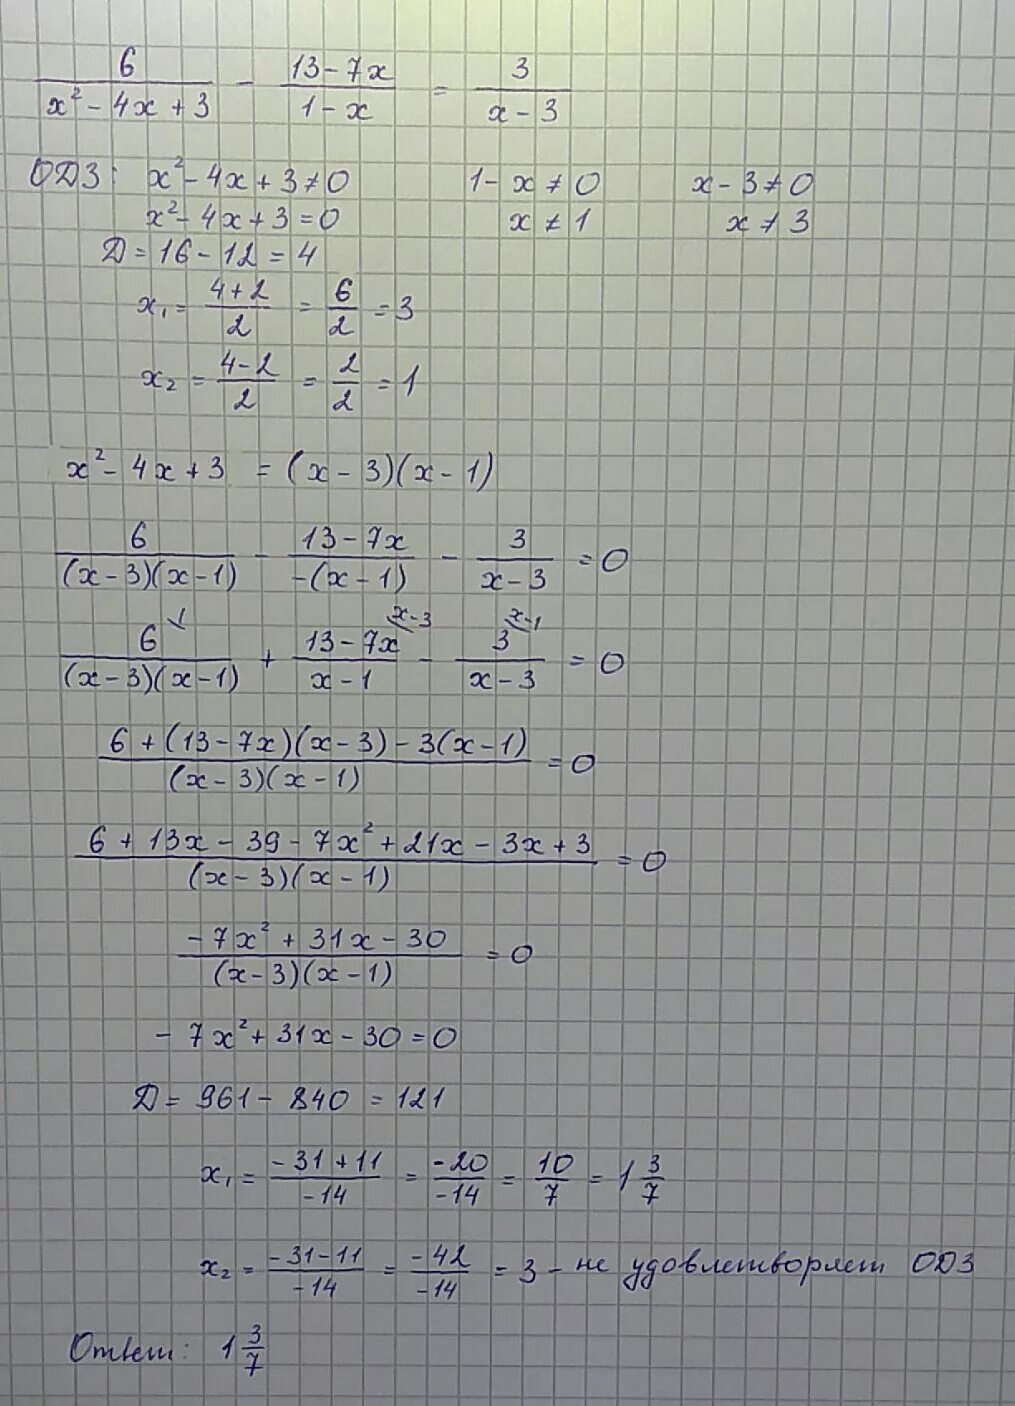 6/(x² - 4x + 3) - (13 - 7x)/(1 - x) = 3/(x - 3)
ОДЗ: x² - 4x + 3 ≠ 0 1 - x ≠ 0 x - 3 ≠ 0
x² - 4x + 3 = 0 x ≠ 1 x ≠ 3
Д = 16 - 12 = 4
x₁ = (4 + 2)/2 = 6/2 = 3
x₂ = (4 - 2)/2 = 2/2 = 1
x² - 4x + 3 = (x - 3)(x - 1)
6/((x - 3)(x - 1)) - (13 - 7x)/(-(x - 1)) - 3/(x - 3) = 0
x - 3 x - 1
6/((x - 3)(x - 1)) + (13 - 7x)/(x - 1) - 3/(x - 3) = 0
(6 + (13 - 7x)(x - 3) - 3(x - 1))/((x - 3)(x - 1)) = 0
(6 + 13x - 39 - 7x² + 21x - 3x + 3)/((x - 3)(x - 1)) = 0
(-7x² + 31x - 30)/((x - 3)(x - 1)) = 0
-7x² + 31x - 30 = 0
Д = 961 - 840 = 121
x₁ = (-31 + 11)/(-14) = (-20)/(-14) = 10/7 = 1 3/7
x₂ = (-31 - 11)/(-14) = (-42)/(-14) = 3 - не удовлетворяет ОДЗ
Ответ: 1 3/7